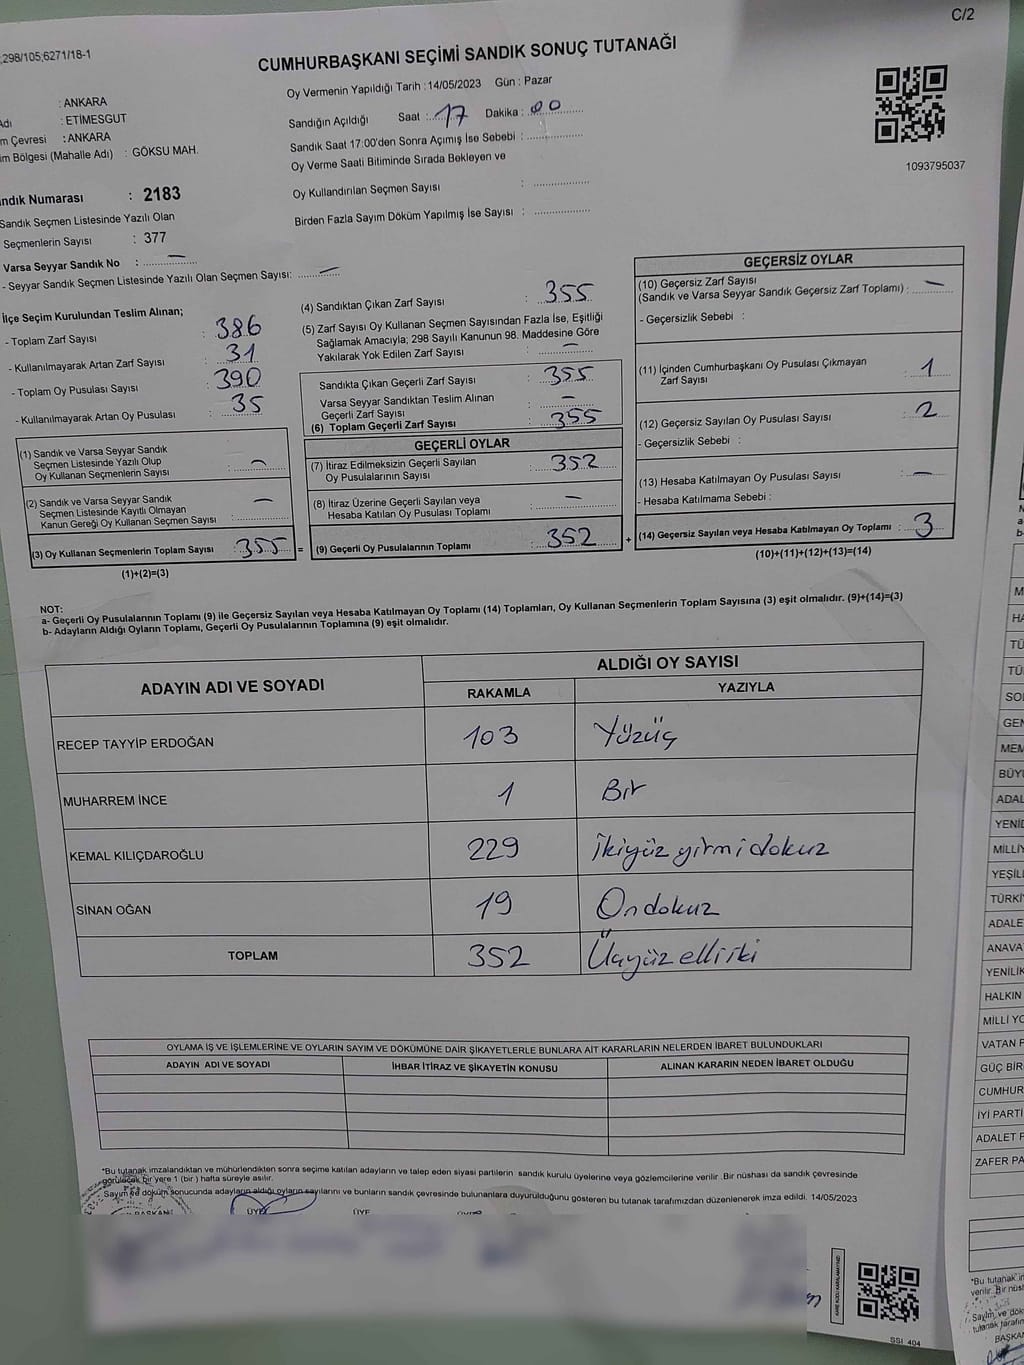 C/2
;298/105;6271/18-1
CUMHURBAŞKANI SEÇİMİ SANDIK SONUÇ TUTANAĞI
: ANKARA
Adı : ETİMESGUT
m Çevresi : ANKARA
im Bölgesi (Mahalle Adı) : GÖKSU MAH.
Oy Vermenin Yapıldığı Tarih :14/05/2023 Gün : Pazar
Sandığın Açıldığı Saat : 17 Dakika : 00
Sandık Saat 17:00'den Sonra Açımış İse Sebebi :
Oy Verme Saati Bitiminde Sırada Bekleyen ve
Oy Kullandırılan Seçmen Sayısı :
Birden Fazla Sayım Döküm Yapılmış İse Sayısı :
1093795037
andık Numarası : 2183
Sandık Seçmen Listesinde Yazılı Olan
Seçmenlerin Sayısı : 377
Varsa Seyyar Sandık No : —
- Seyyar Sandık Seçmen Listesinde Yazılı Olan Seçmen Sayısı: —
İlçe Seçim Kurulundan Teslim Alınan;
- Toplam Zarf Sayısı : 386
- Kullanılmayarak Artan Zarf Sayısı : 31
- Toplam Oy Pusulası Sayısı : 390
- Kullanılmayarak Artan Oy Pusulası : 35
(1) Sandık ve Varsa Seyyar Sandık
Seçmen Listesinde Yazılı Olup
Oy Kullanan Seçmenlerin Sayısı : —
(2) Sandık ve Varsa Seyyar Sandık
Seçmen Listesinde Kayıtlı Olmayan
Kanun Gereği Oy Kullanan Seçmen Sayısı : —
(3) Oy Kullanan Seçmenlerin Toplam Sayısı : 355 =
(1)+(2)=(3)
(4) Sandıktan Çıkan Zarf Sayısı : 355
(5) Zarf Sayısı Oy Kullanan Seçmen Sayısından Fazla İse, Eşitliği
Sağlamak Amacıyla; 298 Sayılı Kanunun 98. Maddesine Göre
Yakılarak Yok Edilen Zarf Sayısı : —
Sandıkta Çıkan Geçerli Zarf Sayısı : 355
Varsa Seyyar Sandıktan Teslim Alınan
Geçerli Zarf Sayısı : —
(6) Toplam Geçerli Zarf Sayısı : 355
GEÇERLİ OYLAR
(7) İtiraz Edilmeksizin Geçerli Sayılan
Oy Pusulalarının Sayısı : 352
(8) İtiraz Üzerine Geçerli Sayılan veya
Hesaba Katılan Oy Pusulası Toplamı : —
(9) Geçerli Oy Pusulalarının Toplamı : 352 +
GEÇERSİZ OYLAR
(10) Geçersiz Zarf Sayısı
(Sandık ve Varsa Seyyar Sandık Geçersiz Zarf Toplamı) : —
- Geçersizlik Sebebi :
(11) İçinden Cumhurbaşkanı Oy Pusulası Çıkmayan
Zarf Sayısı : 1
(12) Geçersiz Sayılan Oy Pusulası Sayısı : 2
- Geçersizlik Sebebi :
(13) Hesaba Katılmayan Oy Pusulası Sayısı : —
- Hesaba Katılmama Sebebi :
(14) Geçersiz Sayılan veya Hesaba Katılmayan Oy Toplamı : 3
(10)+(11)+(12)+(13)=(14)
NOT:
a- Geçerli Oy Pusulalarının Toplamı (9) ile Geçersiz Sayılan veya Hesaba Katılmayan Oy Toplamı (14) Toplamları, Oy Kullanan Seçmenlerin Toplam Sayısına (3) eşit olmalıdır. (9)+(14)=(3)
b- Adayların Aldığı Oyların Toplamı, Geçerli Oy Pusulalarının Toplamına (9) eşit olmalıdır.
ADAYIN ADI VE SOYADI ALDIĞI OY SAYISI
RAKAMLA YAZIYLA
RECEP TAYYİP ERDOĞAN 103 Yüzüç
MUHARREM İNCE 1 Bir
KEMAL KILIÇDAROĞLU 229 İkiyüz yirmi dokuz
SİNAN OĞAN 19 On dokuz
TOPLAM 352 Üçyüz elli iki
OYLAMA İŞ VE İŞLEMLERİNE VE OYLARIN SAYIM VE DÖKÜMÜNE DAİR ŞİKAYETLERLE BUNLARA AİT KARARLARIN NELERDEN İBARET BULUNDUKLARI
ADAYIN ADI VE SOYADI İHBAR İTİRAZ VE ŞİKAYETİN KONUSU ALINAN KARARIN NEDEN İBARET OLDUĞU
*Bu tutanak imzalandıktan ve mühürlendikten sonra seçime katılan adayların ve talep eden siyasi partilerin sandık kurulu üyelerine veya gözlemcilerine verilir. Bir nüshası da sandık çevresinde
görülecek bir yere 1 (bir) hafta süreyle asılır.
Sayım ve döküm sonucunda adayların aldığı oyların sayılarını ve bunların sandık çevresinde bulunanlara duyurulduğunu gösteren bu tutanak tarafımızdan düzenlenerek imza edildi. 14/05/2023
BAŞKAN ÜYE ÜYE
SSI 404
M
HA
TÜ
TÜ
SO
GEN
MEM
BÜYÜ
ADAL
YENİD
MİLLİ
YEŞİL
TÜRKİ
ADALE
ANAVA
YENİLİK
HALKIN
MİLLİ YO
VATAN P
GÜÇ BİR
CUMHUR
İYİ PARTİ
ADALET P
ZAFER PA
*Bu tutanak im
verilir. Bir nüs
Sayım ve dö
tutanak tarafım
BAŞKA